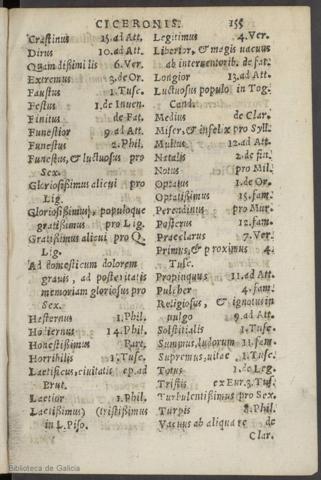 CICERONIS. 155
Crastinus 15. ad Att.
Dirus 10. ad Att.
Quam dißimilis 6. Ver.
Extremus 3. de Or.
Faustus 1. Tusc.
Festus 1. de Inuen.
Finitus de Fat.
Funestior 9. ad Att.
Funestus 2. Phil.
Funestus, & luctuosus pro
Sex.
Gloriosißimus alicui pro
Lig.
Gloriosißimus, populoque
gratißimus pro Lig.
Gratißimus alicui pro Q.
Lig.
Ad domesticum dolorem
grauis, ad posteritatis
memoriam gloriosus pro
Sex.
Hesternus 1. Phil.
Hodiernus 14. Phil.
Honestißimus Parr.
Horribilis 1. Tusc.
Laetificus, ciuitatis ep. ad
Brut.
Laetior 1. Phil.
Laetißimus) (tristißimus
in L. Piso.
Legitimus 4. Ver.
Liberior, & magis uacuus
ab interuentorib. de fat.
Longior 13. ad Att.
Luctuosus populo in Tog.
Cand.
Medius de Clar.
Miser, & infelix pro Syll.
Multus 12. ad Att.
Natalis 2. de fin.
Notus pro Mil.
Optatus 1. de Or.
Optatißimus 15. fam.
Perendinus pro Mur.
Posterus 12. fam.
Praeclarus 7. Ver.
Primus, & proximus 4.
Tusc.
Propinquus 11. ad Att.
Pulcher 4. fam.
Religiosus, & ignotus in
uulgo 9. ad Att.
Solstitialis 1. Tusc.
Summus, ludorum 11. fam.
Supremus, uitae 1. Tusc.
Totus 1. de Leg.
Tristis ex Eur. 3. Tusc.
Turbulentißimus pro Sex.
Turpis 8. Phil.
Vacuus ab aliqua re de
Clar.
Biblioteca de Galicia